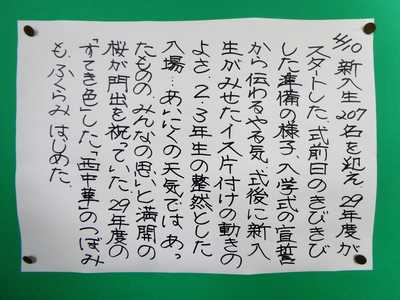 4/10 新入生207名を迎え 29年度が
スタートした。式前日のきびきび
した準備の様子、入学式の宣誓
から伝わるやる気、式後に新入
生がみせたイス片付けの動きの
よさ、2・3年生の整然とした
入場…。あいにくの天気ではあっ
たものの、みんなの思いと満開の
桜が門出を祝っていた。29年度の
「すてき色」した「西中華」のつぼみ
も、ふくらみはじめた。